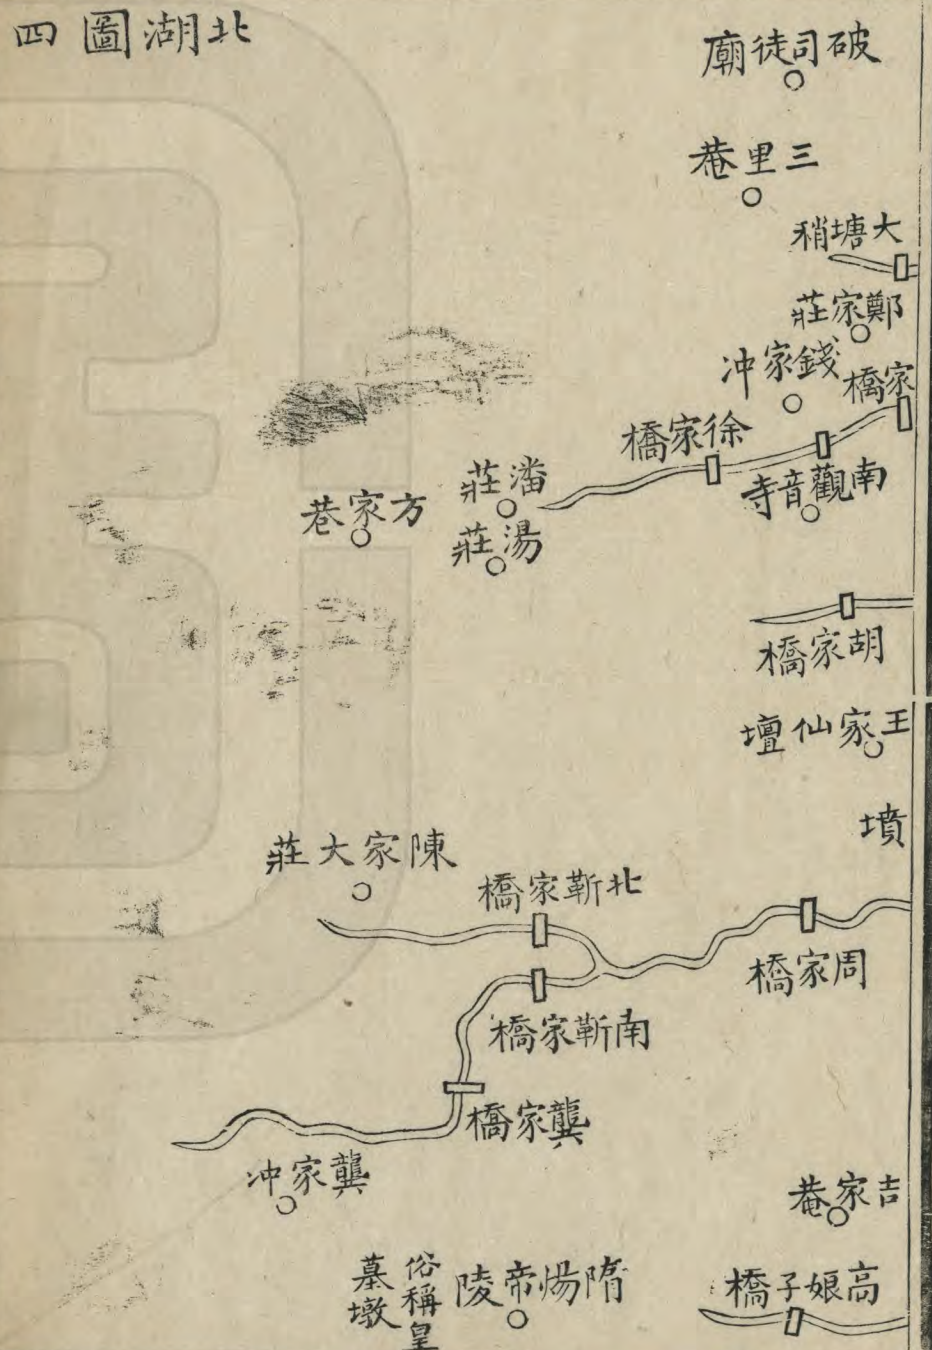 北湖圖四
破司徒廟
三里菴
大塘稍
鄭家莊
錢家冲
家橋
徐家橋
南觀音寺
潘莊
湯莊
方家巷
胡家橋
王家仙壇
墳
陳家大莊
北靳家橋
周家橋
南靳家橋
龔家橋
龔家冲
吉家菴
高娘子橋
隋煬帝陵
俗稱皇
墓墩